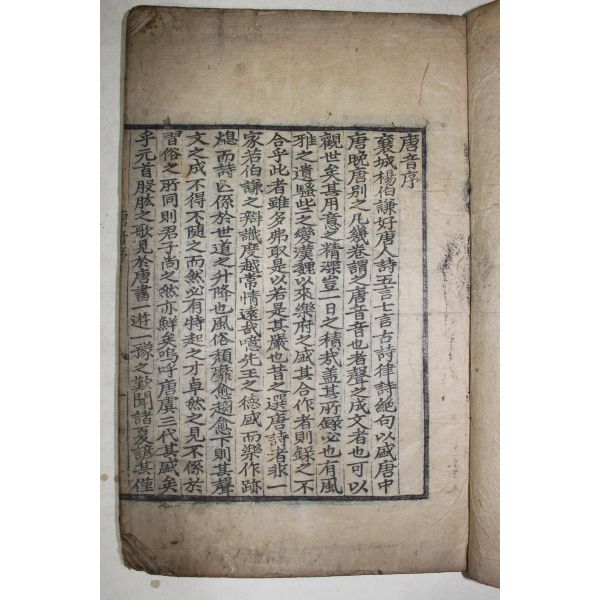 唐音序
襄城楊伯謙好唐人詩五言七言古詩律詩絶句以盛唐中
唐晚唐別之凡幾卷謂之唐音音也者聲之成文者也可以
觀世矣其用意之精深豈一日之積哉盖其所錄必也有風
雅之遺騷些之變漢魏以來樂府之盛其合作者則錄之不
合乎此者雖多弗取是以若是其嚴也昔之選唐詩者非一
家若伯謙之辯識度越常情遠哉噫先王之德盛而樂作跡
熄而詩亡係於世道之升降也風俗頹靡愈趨愈下則其聲
文之成不得不隨之而然必有特起之才卓然之見不係於
習俗之所同則君子尚之然亦鮮矣嗚呼唐虞三代其盛矣
乎元首股肱之歌見於唐書一遊一豫之歎聞諸夏諺其僅